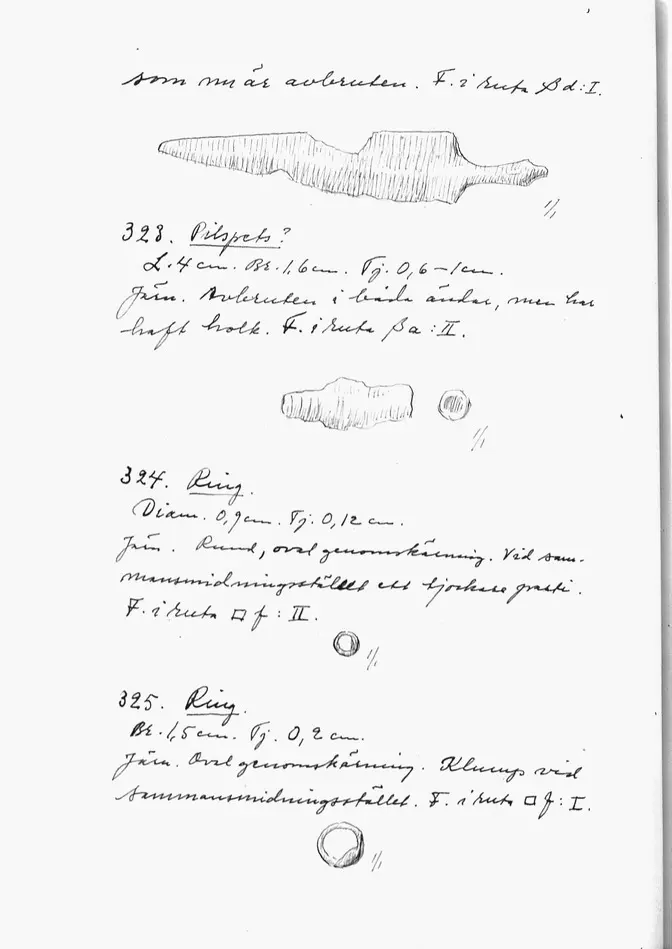 som nu är avbruten. F. i ruta β d : I.
1/1
323. Pilspets?
L. 4 cm. Br. 1,6 cm. Tj. 0,6–1 cm.
Järn. Avbruten i båda ändar, men har
haft holk. F. i ruta β a : II.
1/1
324. Ring.
Diam. 0,9 cm. Tj. 0,12 cm.
Järn. Rund, oval genomskärning. Vid sam-
mansmidningsstället ett tjockare parti.
F. i ruta □ f : II.
1/1
325. Ring.
Br. 1,5 cm. Tj. 0,2 cm.
Järn. Oval genomskärning. Klump vid
sammansmidningsstället. F. i ruta □ f : I.
1/1